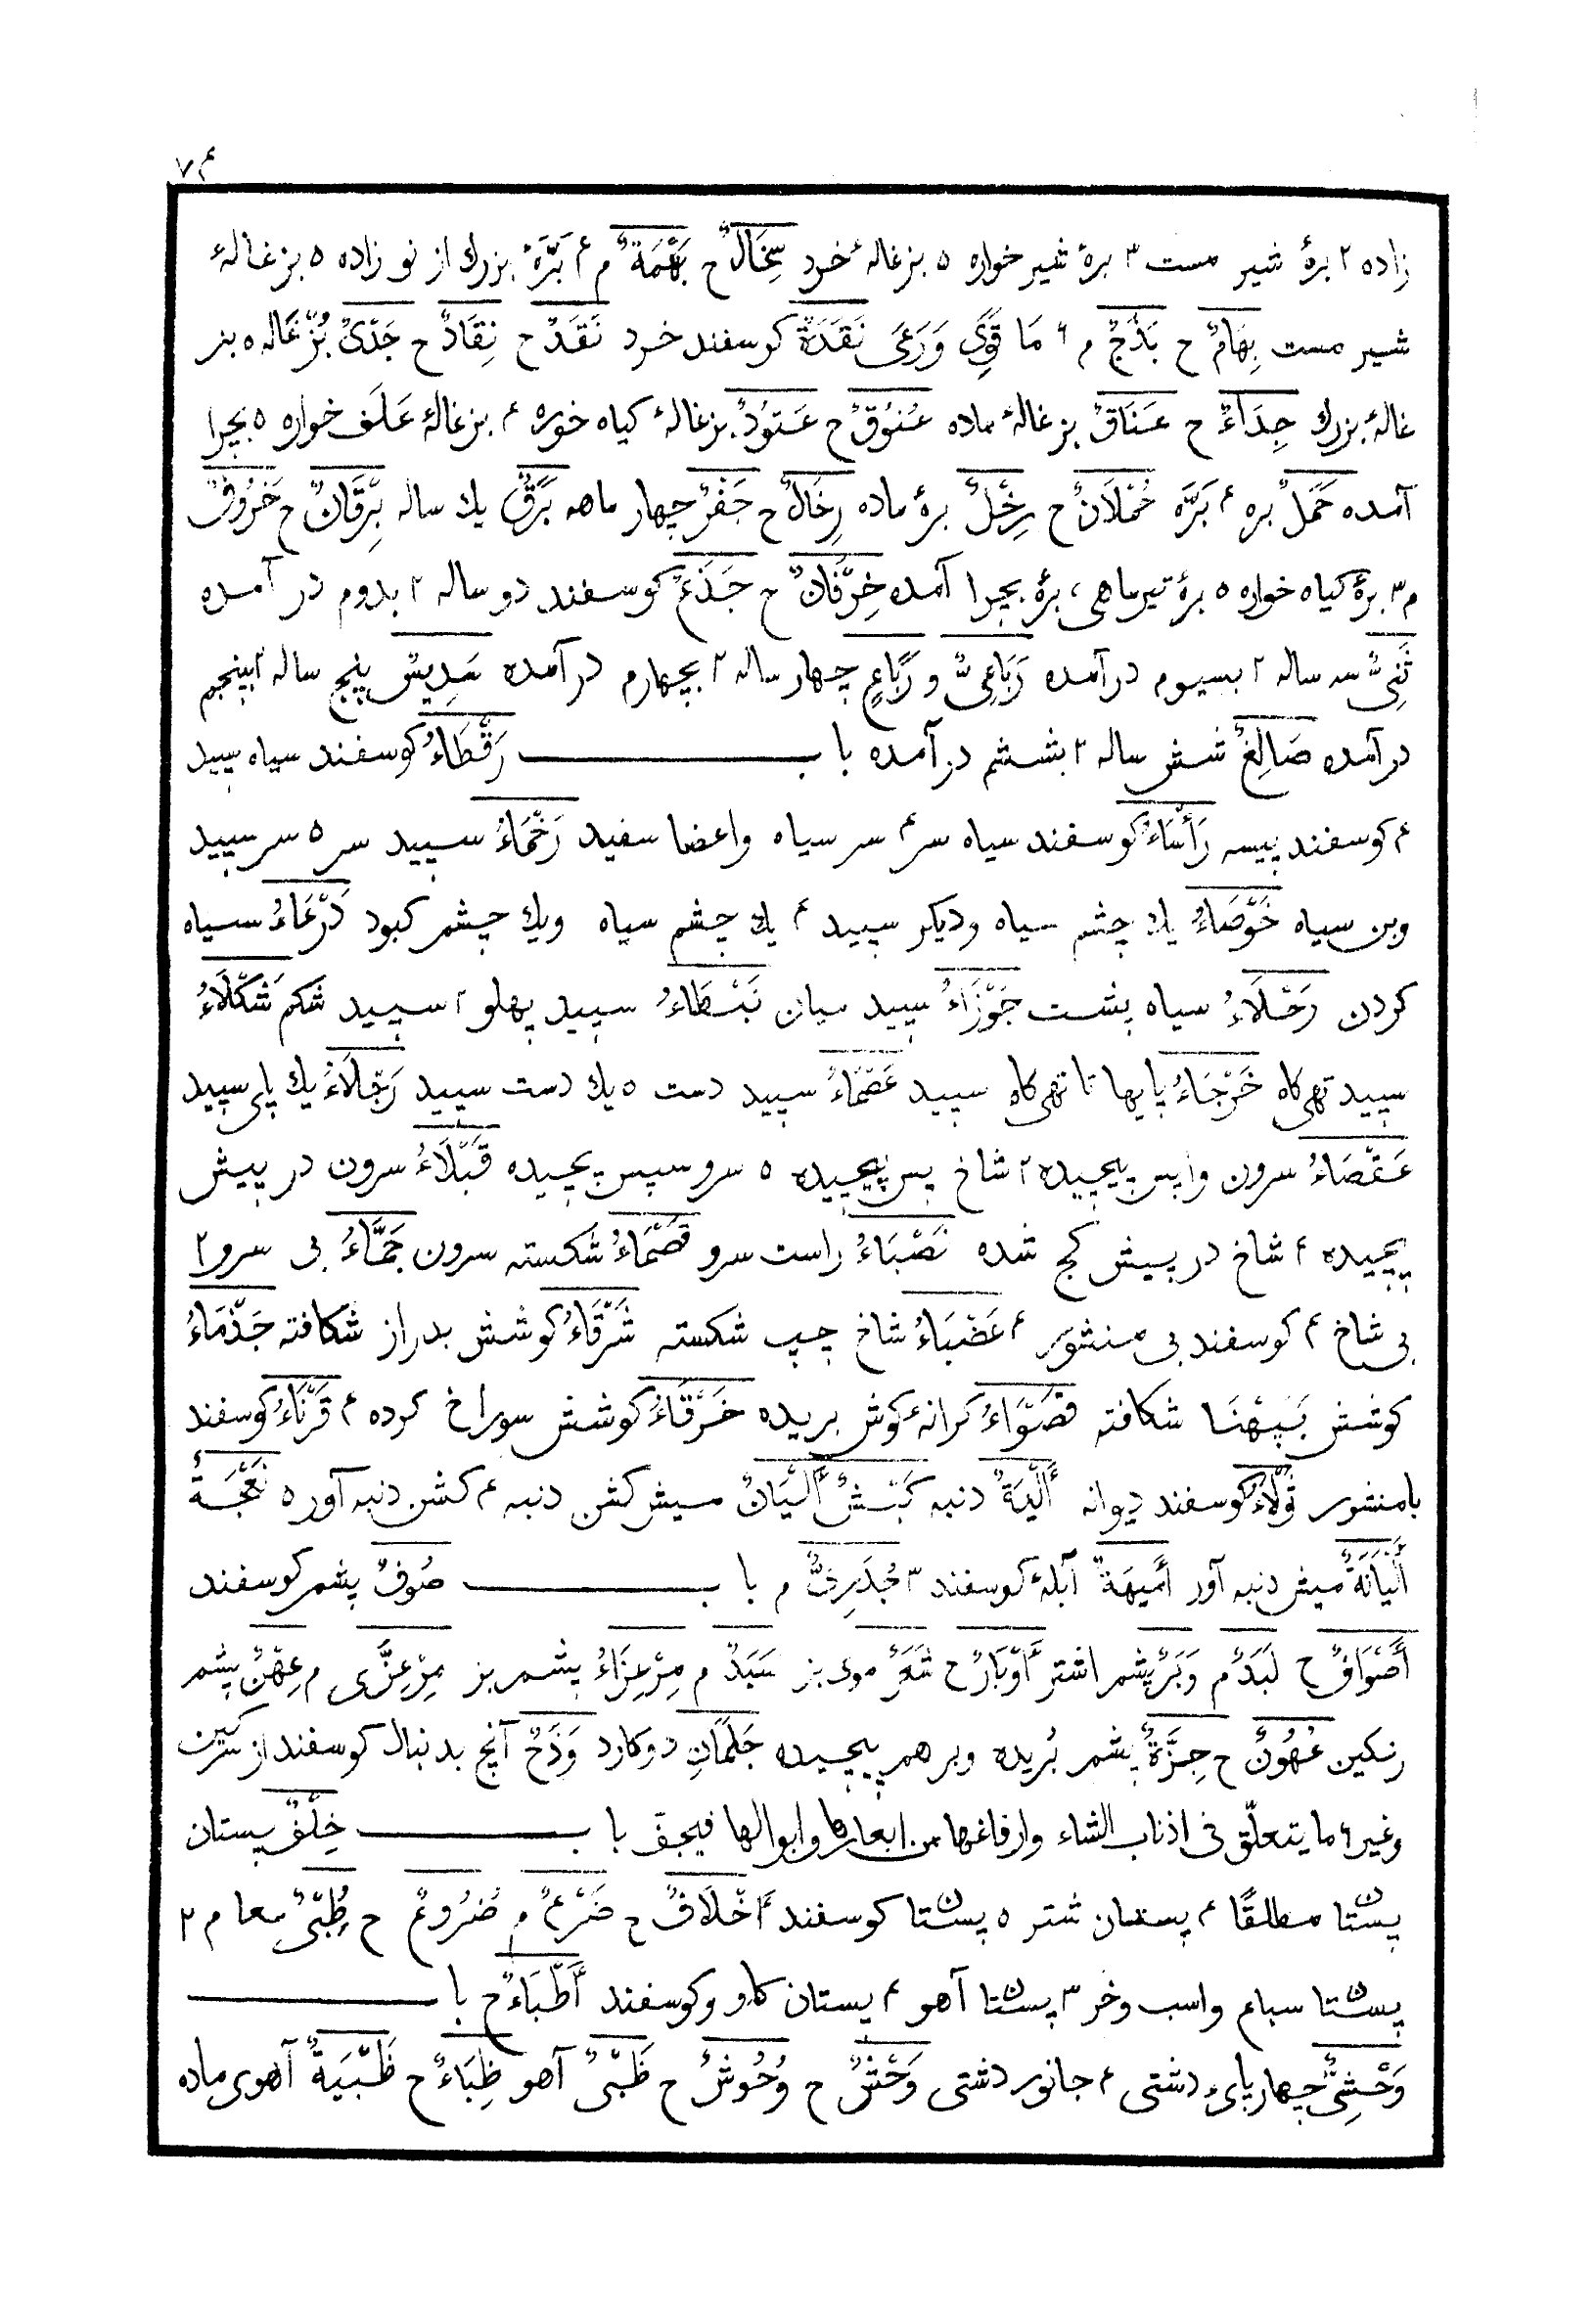 ۷۴
زاده ۲ برهٔ شیر مست ۳ برهٔ شیر خواره ۵ بزغالهٔ خرد سِخَالٌ ح بَهْمَةٌ م ۴ بَرَّهٔ بزرك از نو زاده ۵ بزغالهٔ
شیر مست بِهَامٌ ح بَذَجٌ م ۴ مَا قَوِیَ وَرَعَی نَقَدَةٌ کوسفند خرد نَقَدٌ ح نِقَادٌ ح جَدْیٌ بُزْغاله ۵ بز
غالهٔ بزرك جِدَاءٌ ح عَنَاقٌ بزغالهٔ ماده عُنُوقٌ ح عَتُودٌ بزغالهٔ کیاه خوره ۴ بزغالهٔ عَلَف خواره ۵ بچرا
آمده حَمَلٌ بره ۴ بَرَّه حُمْلَانٌ ح رِخْلٌ برهٔ ماده رِخَالٌ ح جَفْرٌ چهار ماهه بَرَقٌ یك ساله بِرْقَانٌ ح خَرُوفٌ
م ۳ برهٔ کیاه خواره ۵ برهٔ تیرماهی، برهٔ بچرا آمده خِرْفَانٌ ح جَذَعٌ کوسفند دو ساله ۲ بدوم در آمده
ثَنِیٌّ سه ساله ۲ بسیوم درآمده رَبَاعِیٌّ و رَبَاعٍ چهار ساله ۲ بچهارم درآمده سَدِیسٌ پنج ساله ۲ بپنجم
درآمده صَالِغٌ شش ساله ۲ بششم درآمده باب رَقْطَاءُ کوسفند سیاه سپید
۴ کوسفند پیسه رَأْسَاءُ کوسفند سیاه سر ۴ سر سیاه واعضا سفید رَخْمَاءُ سپید سر ۵ سر سپید
وبن سیاه خَوْصَاءُ یك چشم سیاه ودیکر سپید ۴ یك چشم سیاه ویك چشم کبود دَرْعَاءُ سیاه
کردن رَحْلَاءُ سیاه پشت جَوْزَاءُ سپید میان نَبْطَاءُ سپید پهلو ۲ سپید شکم شَکْلَاءُ
سپید تهی کاه خَرْجَاءُ پایها تا تهی کاه سپید عَصْمَاءُ سپید دست ۵ یك دست سپید رَجْلَاءُ یك پای سپید
عَقْصَاءُ سرون واپس پیچیده ۲ شاخ پس پیچیده ۵ سرو سپس پیچیده قَبْلَاءُ سرون در پیش
پیچیده ۴ شاخ در پیش کج شده نَصْبَاءُ راست سرو قَصْمَاءُ شکسته سرون جَمَّاءُ بی سرو ۲
بی شاخ ۴ کوسفند بی منشور ۴ عَضْبَاءُ شاخ چپ شکسته شَرْقَاءُ کوشش بدراز شکافته جَذْمَاءُ
کوشش بَپَهْنَا شکافته قَصْوَاءُ کرانهٔ کوش بریده خَرْقَاءُ کوشش سوراخ کرده ۴ قَرْنَاءُ کوسفند
بامنشور ثَوْلَاءُ کوسفند دیوانه أَلْیَةٌ دنبه کَبْشٌ أَلْیَانٌ میش کشن دنبه ۴ کشن دنبه آور ۵ نَعْجَةٌ
أَلْیَانَةٌ میش دنبه آور أَمِیهَةٌ آبلهٔ کوسفند ۳ جُدَرِیٌّ م باب صُوفٌ پشم کوسفند
أَصْوَافٌ ح لَبَدٌ م وَبَرٌ پشم اشتر أَوْبَارٌ ح شَعَرٌ موی بز سَبَدٌ م مِرْعِزَاءُ پشم بز مِرْعِزَّی م عِهْنٌ پشم
رنکین عُهُونٌ ح جِزَّةٌ پشم بُریده وبرهم پیچیده جَلَمَانِ دوکارد وَذَحٌ آنچ بدنبال کوسفند از سرکین
وغیره ما یتعلّق فی اذناب الشاء وارفاغها من ابعارها وابوالها فیجفّ باب خِلْفٌ پستان
پستان مطلقًا ۴ پستان شتر ۵ پستان کوسفند أَخْلَافٌ ح ضَرْعٌ م ضُرُوعٌ ح طُبْیٌ معا م ۲
پستان سباع واسب وخر ۳ پستان آهو ۴ پستان کاو وکوسفند أَطْبَاءٌ ح باب
وَحْشِیٌّ چهارپایء دشتی ۴ جانور دشتی وَحْشٌ ح وُحُوشٌ ح ظَبْیٌ آهو ظِبَاءٌ ح ظَبْیَةٌ آهوی ماده